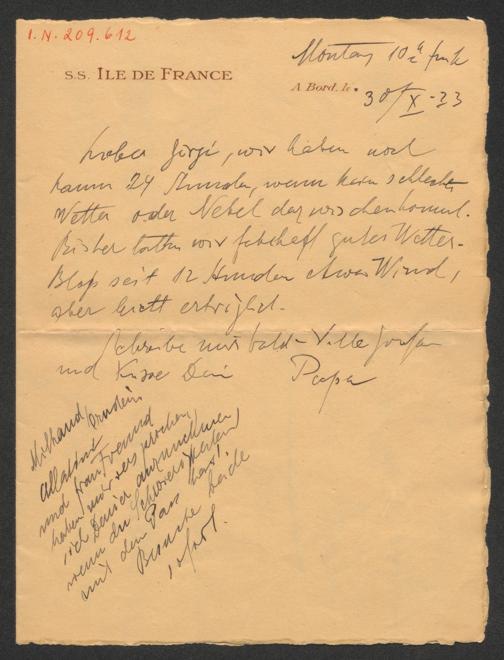 I.N. 209.612
S.S. ILE DE FRANCE
Montag 10 h früh
A Bord, le 30/X-33
Lieber Görgi, wir haben noch
kaum 24 Stunden, wenn kein schlechtes
Wetter oder Nebel dazwischenkommt.
Bisher hatten wir fabelhaft gutes Wetter.
Bloss seit 12 Stunden etwas Wind,
aber recht erträglich.
Schreibe mir bald. Viele Grüsse
und Küsse Dein Papa
Milhaud,
Allatini
und Frau Freund
haben mir versprochen,
sich Deiner anzunehmen,
wenn du Schwierigkeiten
mit dem Pass hast!
Besuche beide
sofort.